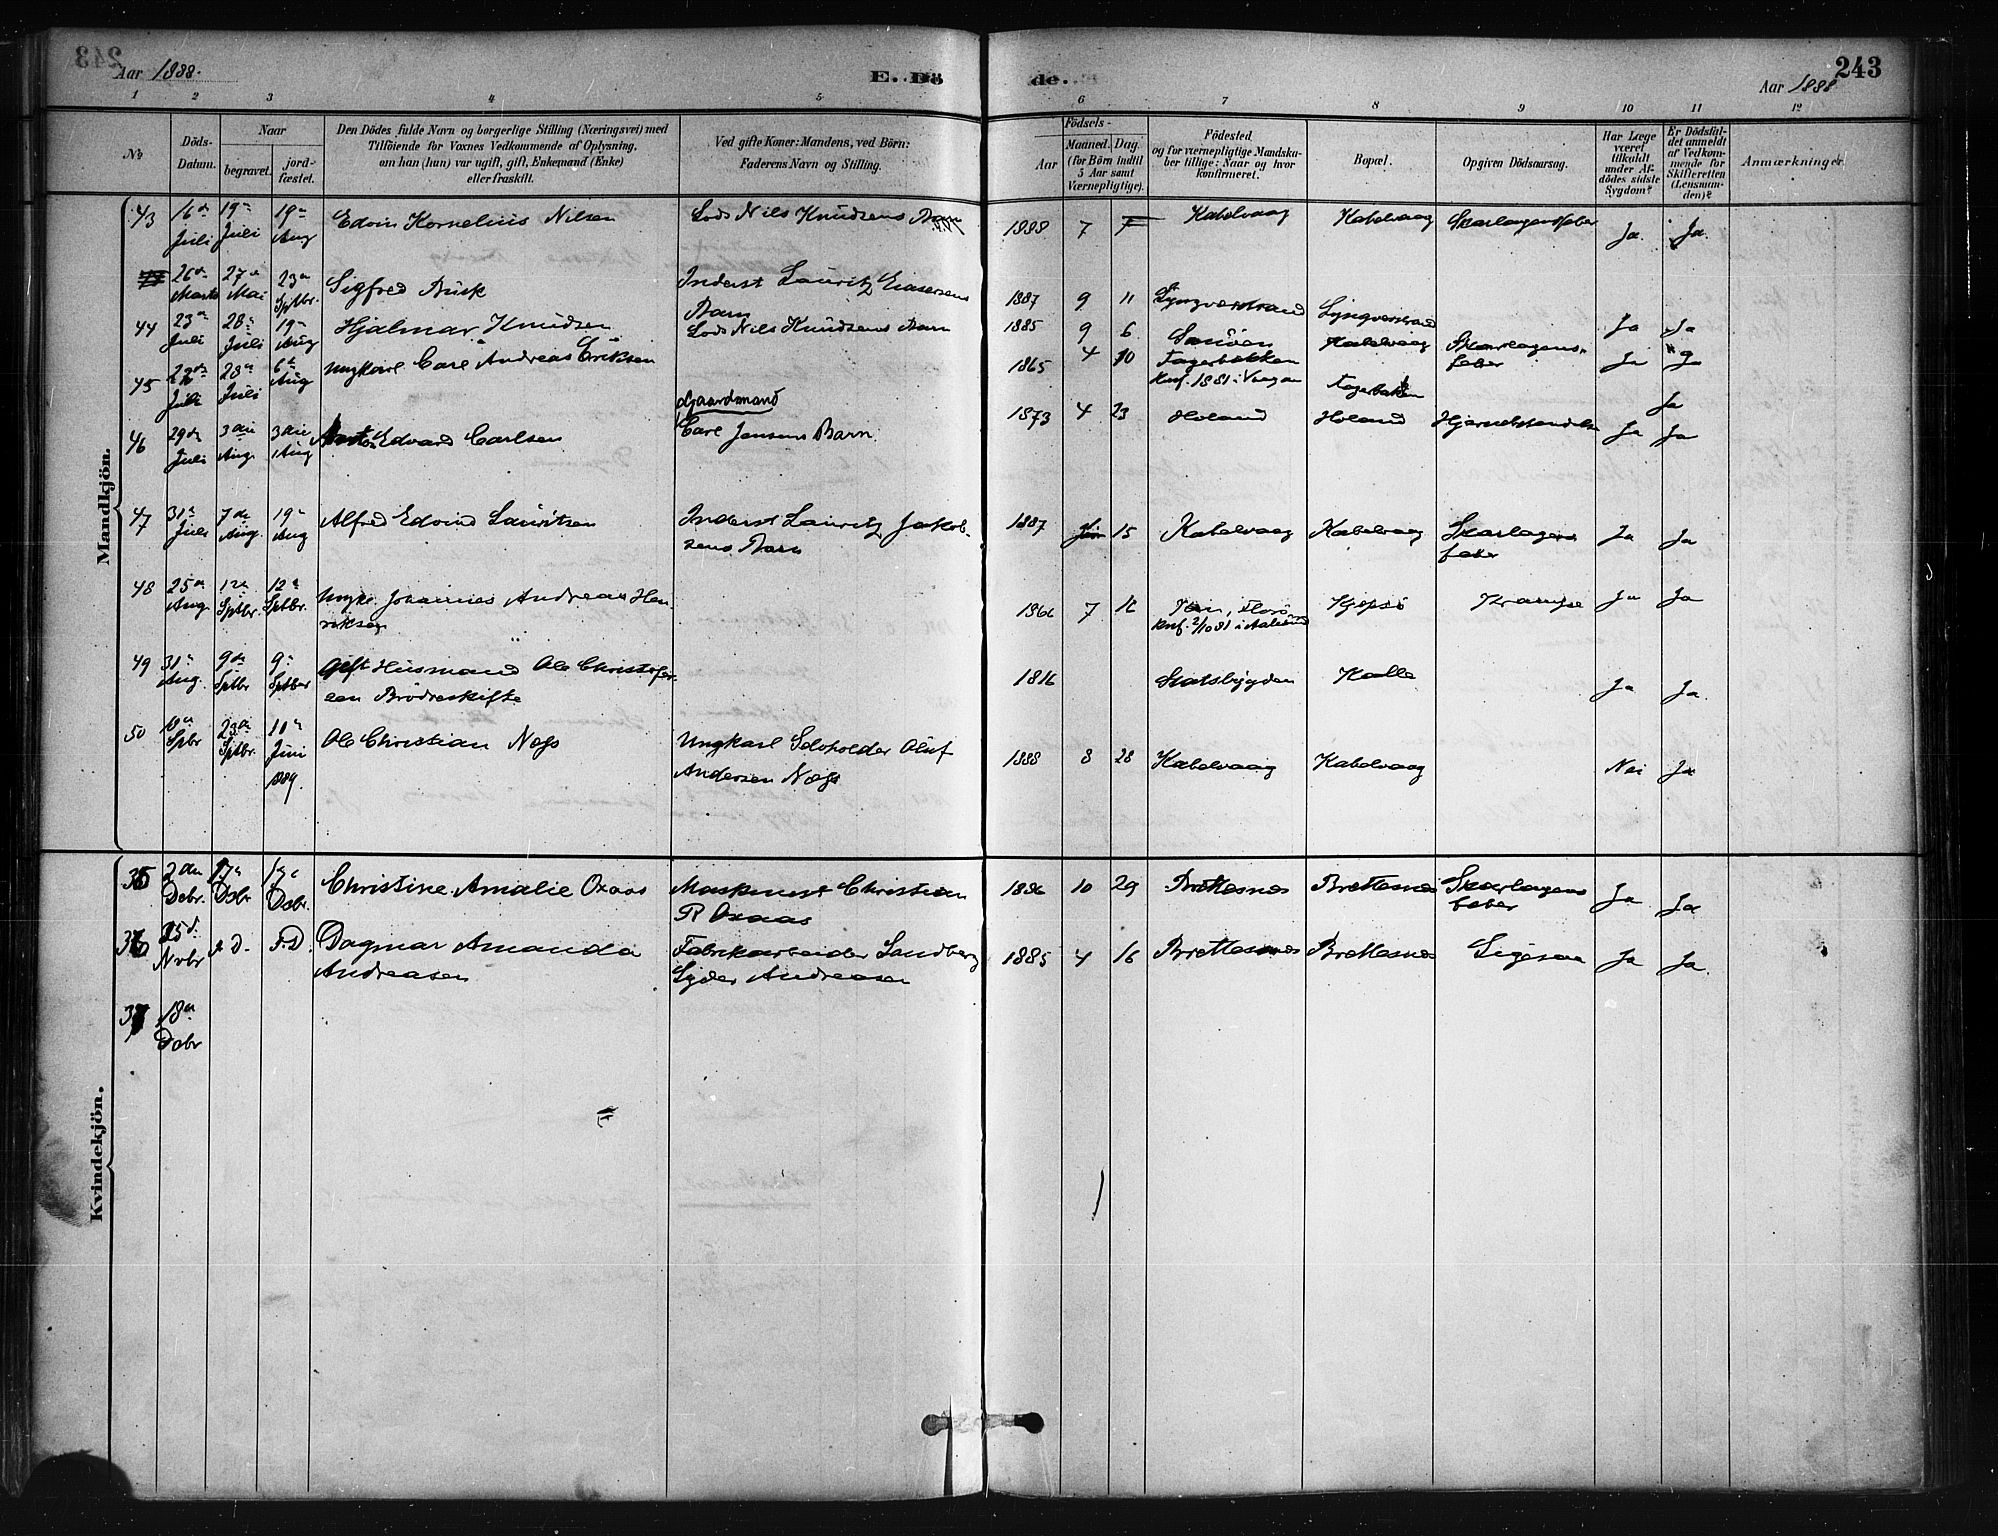 243
Aar 1888.
E. Dö
de.
Aar 1888
1 2 3 4 5 6 7 8 9 10 11 12
No
Döds-Datum.
Naar
begravet.
jord-fæstet.
Den Dödes fulde Navn og borgerlige Stilling (Næringsvei) med
Tilföiende for Voxnes Vedkommende af Oplysning,
om han (hun) var ugift, gift, Enkemand (Enke)
eller fraskilt.
Ved gifte Koner: Mandens, ved Börn:
Faderens Navn og Stilling.
Födsels-
Aar
Maaned. Dag.
(for Börn indtil
5 Aar samt
Værnepligtige).
Födested
og for værnepligtige Mandska-
ber tillige: Naar og hvor
konfirmeret.
Bopæl.
Opgiven Dödsaarsag.
Har Læge
været
tilkaldt
under Af-
dödes sidste
Sygdom?
Er Dödsfal-
det anmeldt
af Vedkom-
mende for
Skifteretten
(Lensman-
den)?
Anmærkninger.
Mandkjön.
43 16de Juli 19de Juli 19de Aug Edvin Kornelius Nilsen Lods Nils Knudsens Barn 1888 7 Kabelvaag Kabelvaag Skarlagensfeber Ja Ja
26de Marts 27de Mai 23de Sptbr. Sigfred Brisk Inderst Lauritz Eiasersens Barn 1887 9 11 Lyngværstrand Lyngverstrand Ja Ja
44 23de Juli 28de Juli 19de Aug Hjalmar Knudsen Lods Nils Knudsens Barn 1885 9 6 Kabelvaag Skarlagens-
feber Ja Ja
45 22de Juli 28de Juli 6te Aug Ungkarl Carl Andreas Eriksen 1865 4 10 Fagerbakken
Knf. 1881 i Vaagan Fagerbakken Ja
46 29de Juli 3die Aug. 3die Aug Edvard Carlsen Gaardmand
Carl Jensens Barn 1873 4 23 Holand Holand Ja Ja
47 31te Juli 7de Aug. 19de Aug Alfred Edvind Lauritsen Inderst Lauritz Jakob-
sens Barn 1887 15 Kabelvaag Kabelvaag Skarlagens
feber Ja Ja
48 25de Aug. 12te Sptbr. 12te Sptbr. Ungk. Johannes Andreas Hen-
riksen 1866 7 12 Florö
knf. 2/10 81 i Aalesund Hopsö Krampe Ja Ja
49 31te Aug. 9de Sptbr 9de Sptbr Gift Husmand Ole Christofer-
sen Brödreskifte 1816 Statsbygden Kalle Ja Ja
50 Spbr 23de Sptbr. 10de Juni 1889. Ole Christian Næss Ungkarl Selvholder Oluf
Andersen Næss 1888 8 28 Kabelvaag Kabelvaag Nei Ja
Kvindekjön.
35 2den Dcbr. 17de Dcbr 17de Dcbr. Christine Amalie Oxaas Maskinist Christian
R Oxaas 1886 10 29 Brettesnes Brettesnes Skarlagens
feber Ja Ja
36 25de Nvbr s. D. s. D. Dagmar Amanda
Andreasen Fabrikarbeider Sandberg
Lyder Andreasen 1885 4 16 Brettesnes Brettesnes Ligesaa Ja Ja.
37 18de Dcbr